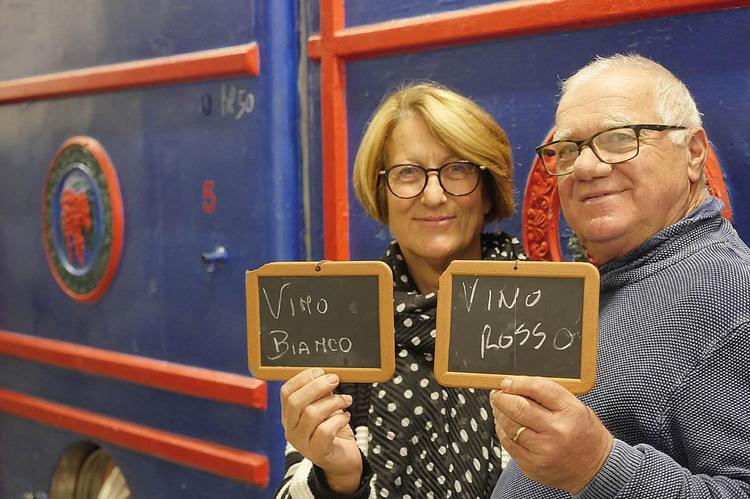 hl 50
5
VINO
BIANCO
VINO
ROSSO